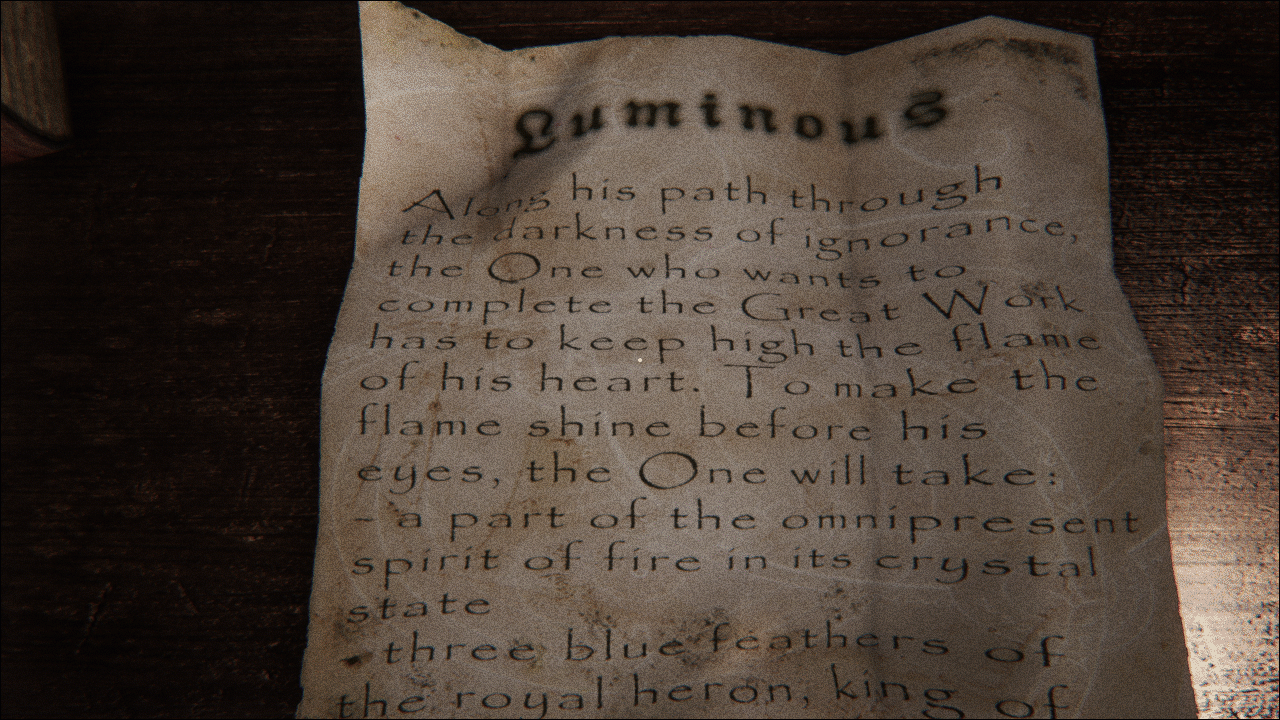 Luminous
Along his path through
the darkness of ignorance,
the One who wants to
complete the Great Work
has to keep high the flame
of his heart. To make the
flame shine before his
eyes, the One will take:
- a part of the omnipresent
spirit of fire in its crystal
state
- three blue feathers of
the royal heron, king of